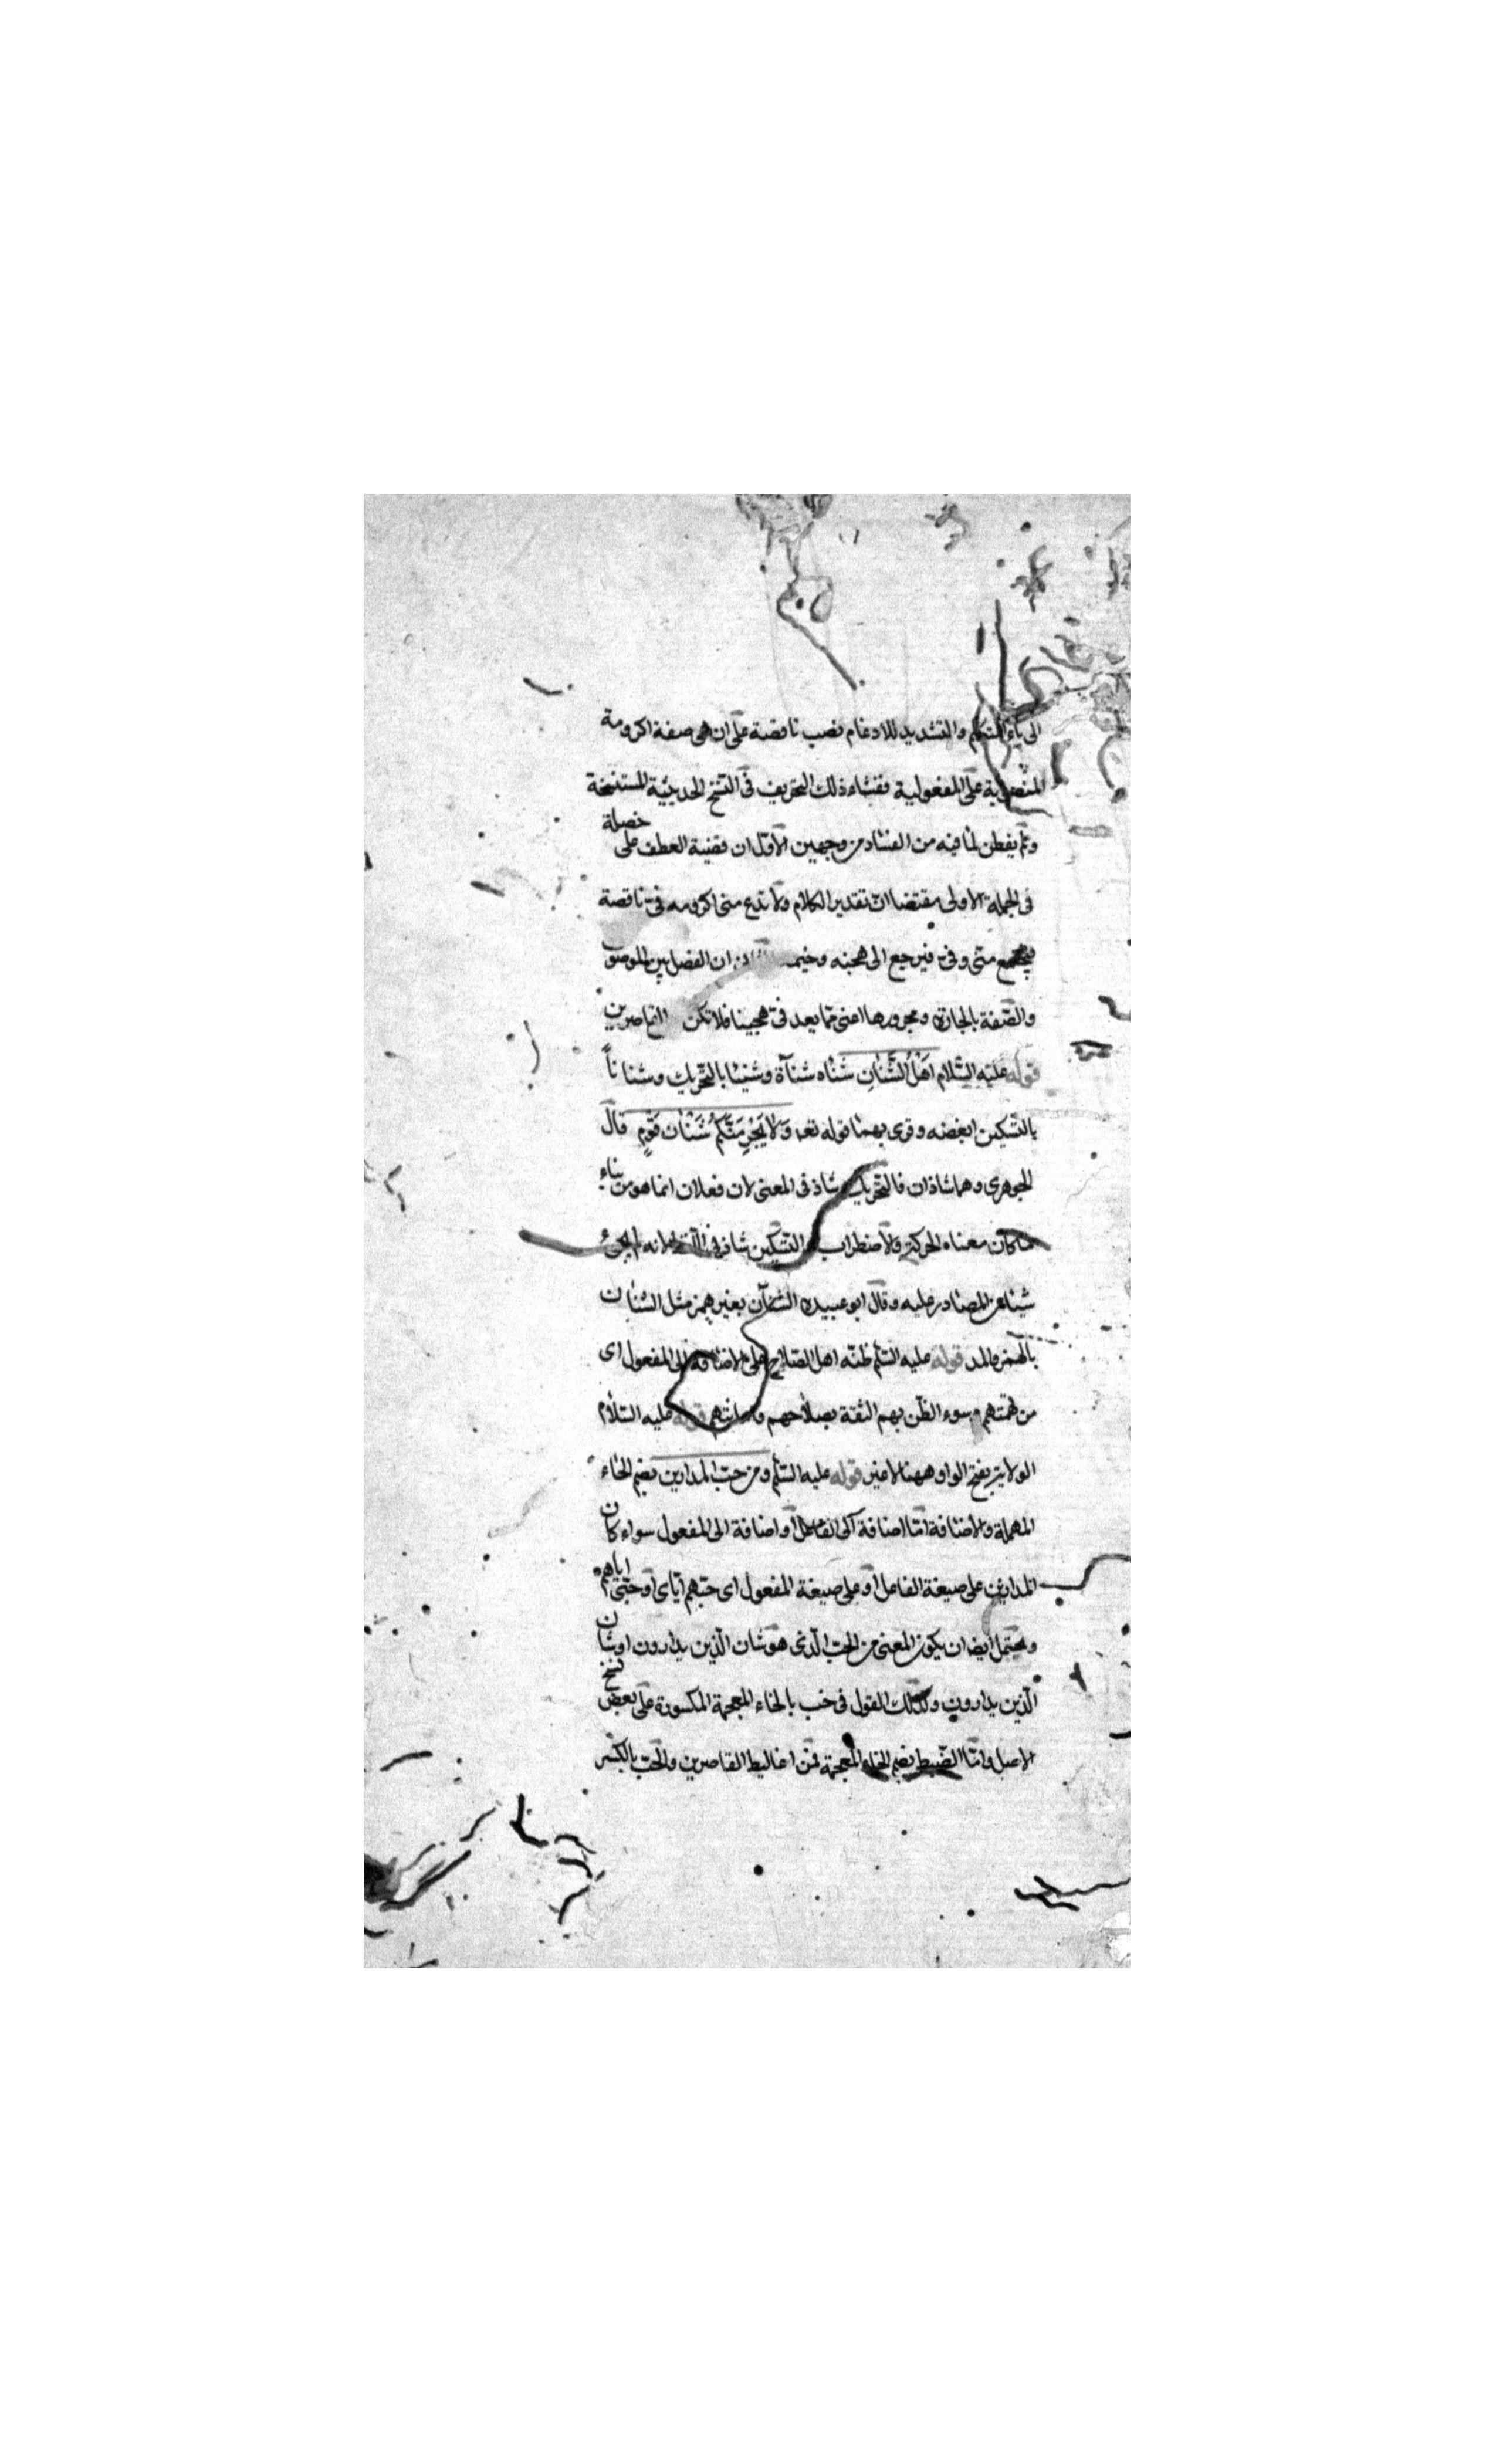 الى ياء المتكلم والتشديد للادغام فصب ناقصة على ان هى صفة اكرومة
المنصوبة على المفعولية ففشاء ذلك التحريف فى النسخ الحديثة المستنسخة
ولم يفطن لما فيه من الفساد من وجهين الاوّل ان قضية العطف على خصلة
فى الجملة الاولى مقتضاا انّ تقدير الكلام ولا تدع منى اكرومه فىّ ناقصة
فيجتمع منّى وفىّ فيرجع الى هجنه ان الفصل بين الموصوف
والصّفة بالجارّ ومجرورها اعنى ممّا بعد فىّ هجيناً فلا تكن القاصرين
قوله عليه السّلام اهْلُ الشَّنَاٰنِ شَنَاه شنآة وشنئا بالتّحريك وشناناً
بالتّسكين ابغضه وقرى بهما قوله تعه وَلاٰ يَجْرِمَنَّكُمْ شَنَاٰنُ قَوْمٍ قال
الجوهرى وهما شاذان فالتّحريك شاذ فى المعنى لان فعلان انما هو من بناء
ماكان معناه الحركة والاضطراب والتّسكين شاذ فى اللّفظ لانه لم يجئ
شئ من المصادر عليه وقال ابو عبيده الشنآن بغير همز مثل الشنان
بالهمز والمد قوله عليه السّلم ظنّه اهل الصّلاح على الاضافة الى المفعول اى
من تهمتهم وسوء الظّن بهم الثقة بصلاحهم وامانتهم قوله عليه السّلام
الولاية بفتح الواو ههنا لا غير قوله عليه السّلم ومن حبّ المدارين بضم الحاء
المهملة والاضافة امّا اضافة الى الفاعل او اضافة الى المفعول سواء كان
المدارين على صيغة الفاعل او على صيغة المفعول اى حبّهم ايّاى او حبّى اياهم
ويحتمل ايضا ان يكون المعنى من الحبّ الّذى هو شان الّذين يدارون او شان
الّذين يدارون وكذلك القول فى خب بالخاء المعجمة المكسورة على بعض نسخ
الاصل وامّا الضّبط بضم الخاء المعجمة فمن اغاليط القاصرين والحبّ بالكسر